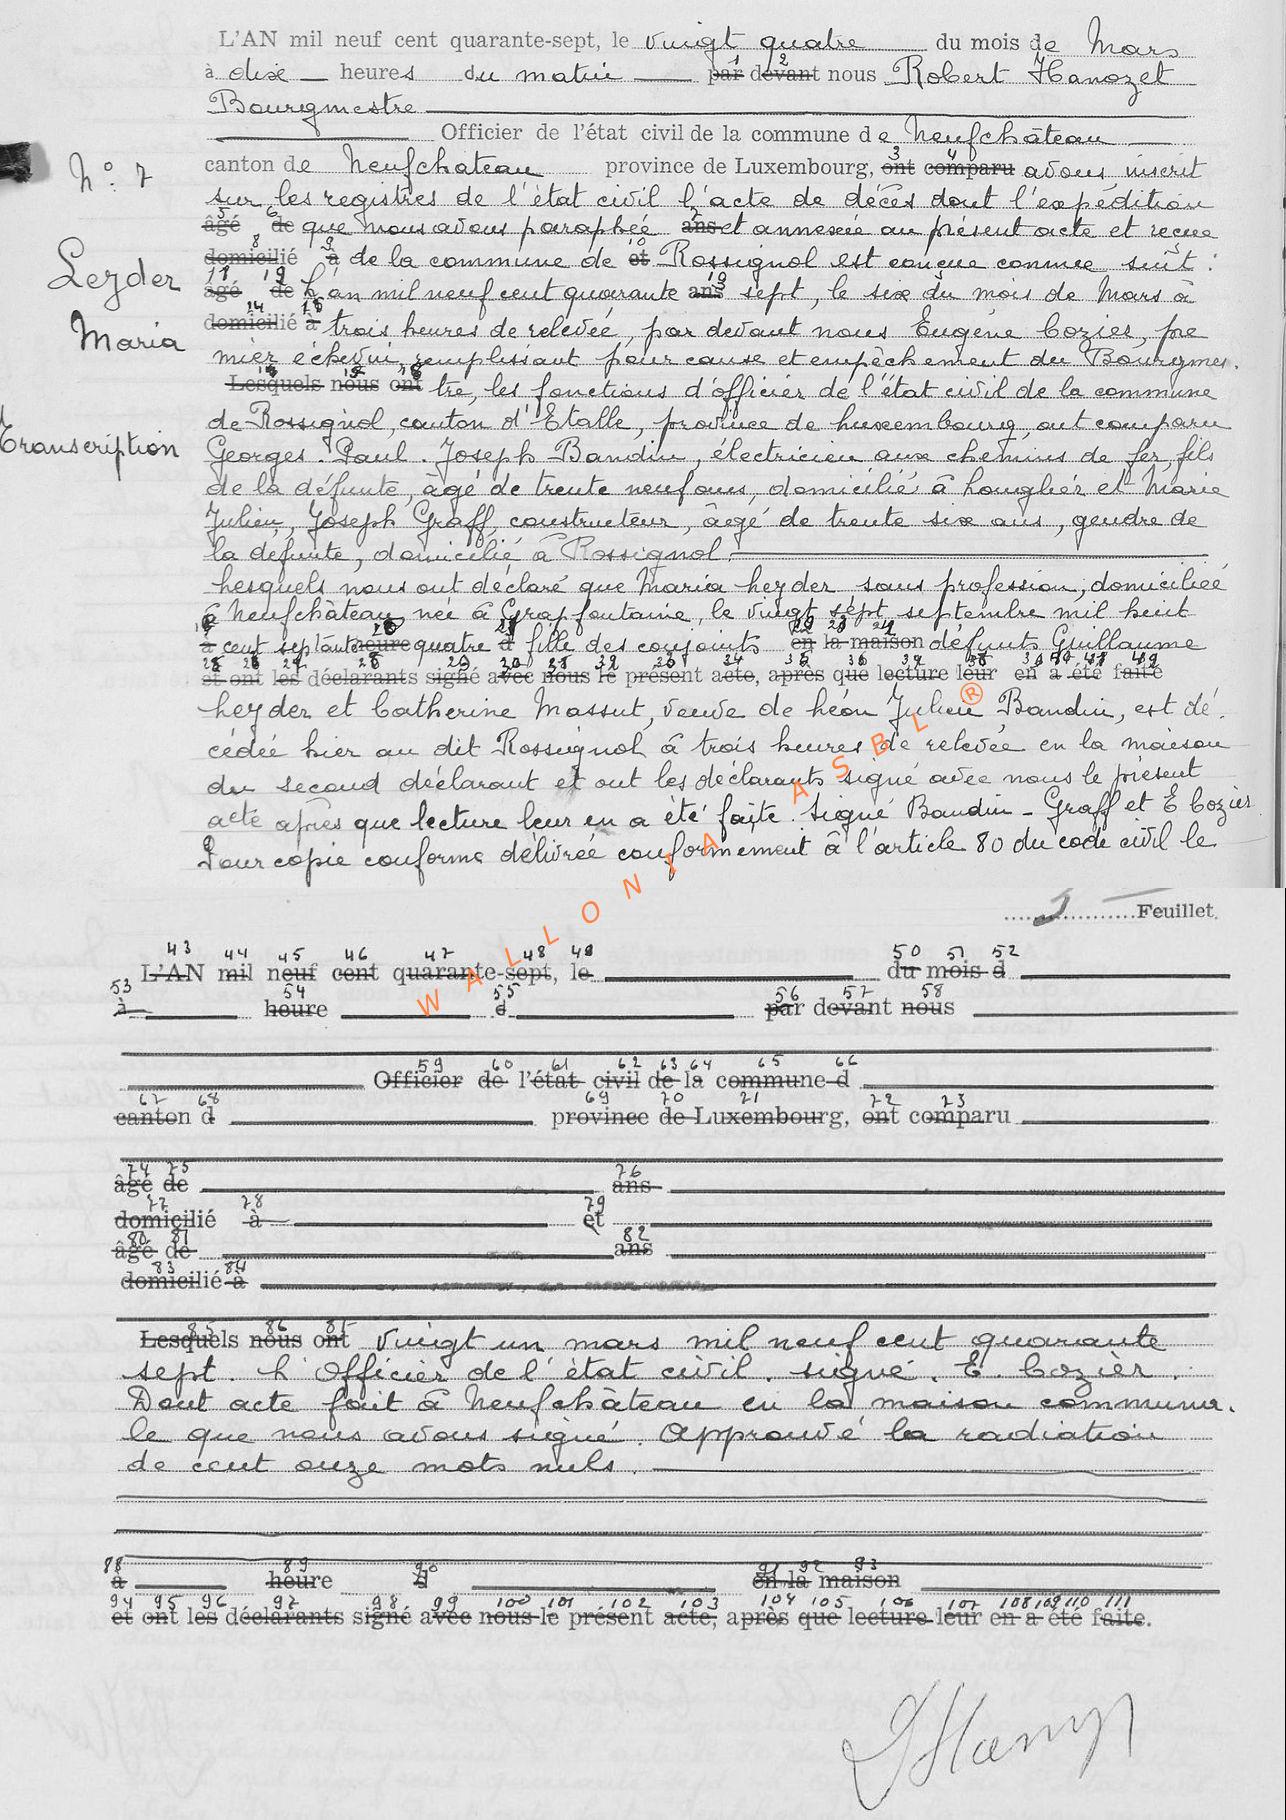 L'AN mil neuf cent quarante-sept, le vingt quatre du mois de Mars
à dix heures du matin par devant nous Robert Hanozet
Bourgmestre
Officier de l'état civil de la commune de Neufchâteau
N° 7
canton de Neufchateau province de Luxembourg, ont comparu avons inscrit
sur les registres de l'état civil l'acte de décès dont l'expédition
âgé de que nous avons paraphée ans et annexée au présent acte et recue
domicilié à de la commune de et Rossignol est conçue comme suit :
Leyder
Maria
âgé de L'an mil neuf cent quarante ans sept, le six du mois de Mars à
domicilié à trois heures de relevée, par devant nous Eugène Cozier, pre
mier échevin remplissant pour cause et empêchement du Bourgmes.
Lesquels nous ont tre, les fonctions d'officier de l'état civil de la commune
Transcription
de Rossignol, canton d'Etalle, province de Luxembourg, ont comparu
Georges. Paul. Joseph Baudin, électricien aux chemins de fer, fils
de la défunte, âgé de trente neuf ans, domicilié à Longlier et Marie
Julien, Joseph Graff, constructeur, âgé de trente six ans, gendre de
la défunte, domicilié à Rossignol.
Lesquels nous ont déclaré que Maria Leyder sans profession, domiciliée
à Neufchâteau née à Grapfontaine, le vingt sept septembre mil huit
à cent septante heure quatre d fille des conjoints en la maison défunts Guillaume
et ont les déclarants signé avec nous le présent acte, après que lecture leur en a été faite
Leyder et Catherine Massut, veuve de Léon Julien Baudin, est dé.
cédée hier au dit Rossignol à trois heures de relevée en la maison
du second déclarant et ont les déclarants signé avec nous le présent
acte après que lecture leur en a été faite. Signé Baudin - Graff et E Cozier
Pour copie conforme délivrée conformement à l'article 80 du code civil le
WALLONIA ASBL ®
3 Feuillet.
43 44 45 46 47 48 49 50 51 52
L'AN mil neuf cent quarante-sept, le du mois d
53 54 55 56 57 58
à heure d par devant nous
59 60 61 62 63 64 65 66
Officier de l'état civil de la commune d
67 68 69 70 71 72 73
canton d province de Luxembourg, ont comparu
74 75 76
âgé de ans
77 78 79
domicilié à et
80 81 82
âgé de ans
83 84
domicilié à
85 86 87
Lesquels nous ont vingt un mars mil neuf cent quarante
sept. L'Officier de l'état civil. signé. E. Cozier.
Dont acte fait à Neufchâteau en la maison commun.
le que nous avons signé. Approuvé la radiation
de cent onze mots nuls.
88 89 90 91 92 93
à heure d en la maison
94 95 96 97 98 99 100 101 102 103 104 105 106 107 108 109 110 111
et ont les déclarants signé avec nous le présent acte, après que lecture leur en a été faite.